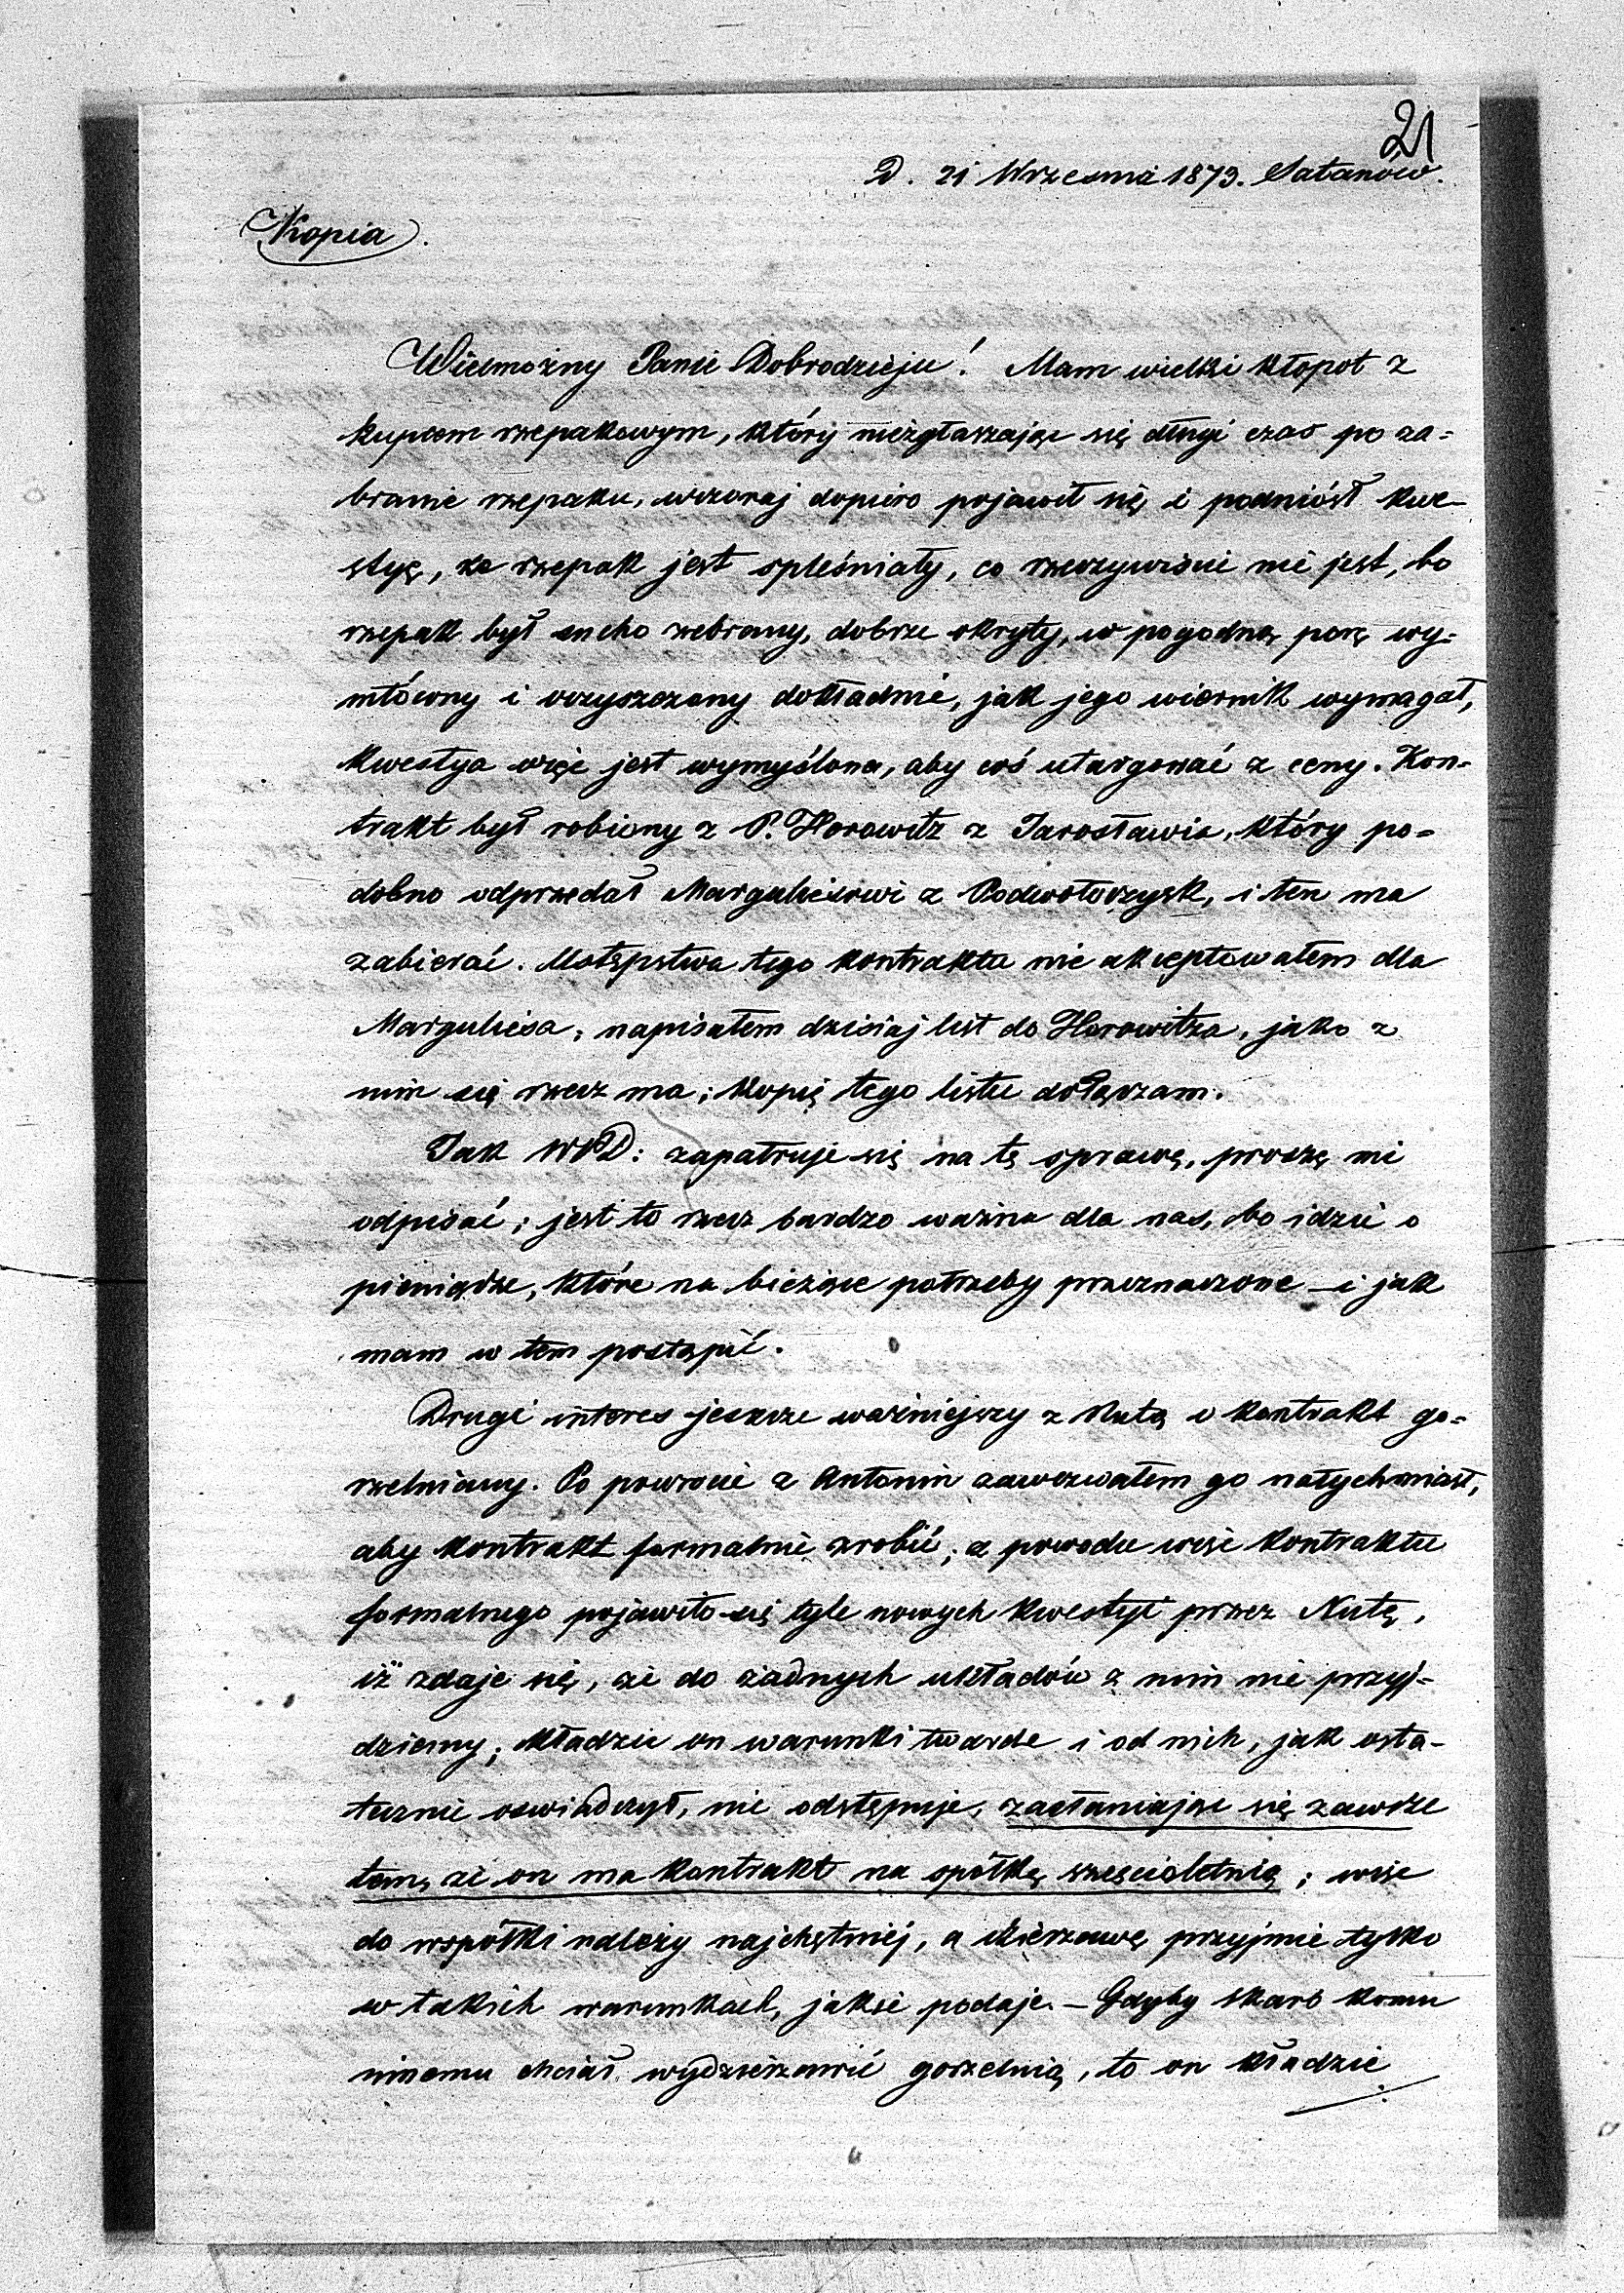 21
D. 21 Września 1873. Satanów.
Kopia.
Wielmożny Panie Dobrodzieju! Mam wielki kłopot z
kupcem rzepakowym, który niezgłaszając się długi czas po za=
branie rzepaku, wczoraj dopiero pojawił się i podniósł kwe-
styę, że rzepak jest spleśniały, co rzeczywiście nie jest, bo
rzepak był sucho zebrany, dobrze okryty, w pogodną porę wy=
młócony i oczyszczony dokładnie, jak jego wiernik wymagał,
kwestya więc jest wymyślona, aby coś utargować z ceny. Kon=
trakt był robiony z P. Horowitz z Jarosławia, który po=
dobno odprzedał Marguliesowi z Podwołoczysk, i ten ma
zabierać. Ustępstwa tego kontraktu nie akceptowałem dla
Marguliesa; napisałem dzisiaj list do Horowitza, jako z
nim się rzecz ma; kopię tego listu dołączam.
Jak WPD: zapatruje się na tę sprawę, proszę mi
odpisać; jest to rzecz bardzo ważna dla nas, bo idzie o
pieniądze, które na bieżące potrzeby przeznaczone – i jak
mam w tem postąpić.
Drugi interes jeszcze ważniejszy z Nutą o kontrakt go=
rzelniany. Po powrocie z Antonin zawezwałem go natychmiast,
aby kontrakt formalnie zrobić; z powodu więc kontraktu
formalnego pojawiło się tyle nowych kwestyi przez Nutę,
iż zdaje się, że do żadnych układów z nim nie przyj=
dziemy; kładzie on warunki twarde i od nich, jak osta-
tecznie oświadczył, nie odstępuje, zasłaniając się zawsze
tem, że on ma kontrakt na spółkę sześcioletnią; więc
do wspólki należy najchętniej, a dzierzawę przyjmie tylko
w takich warunkach, jakie podaje. – Gdyby skarb komu
innemu chciał wydzierżawić gorzelnią, to on kładzie